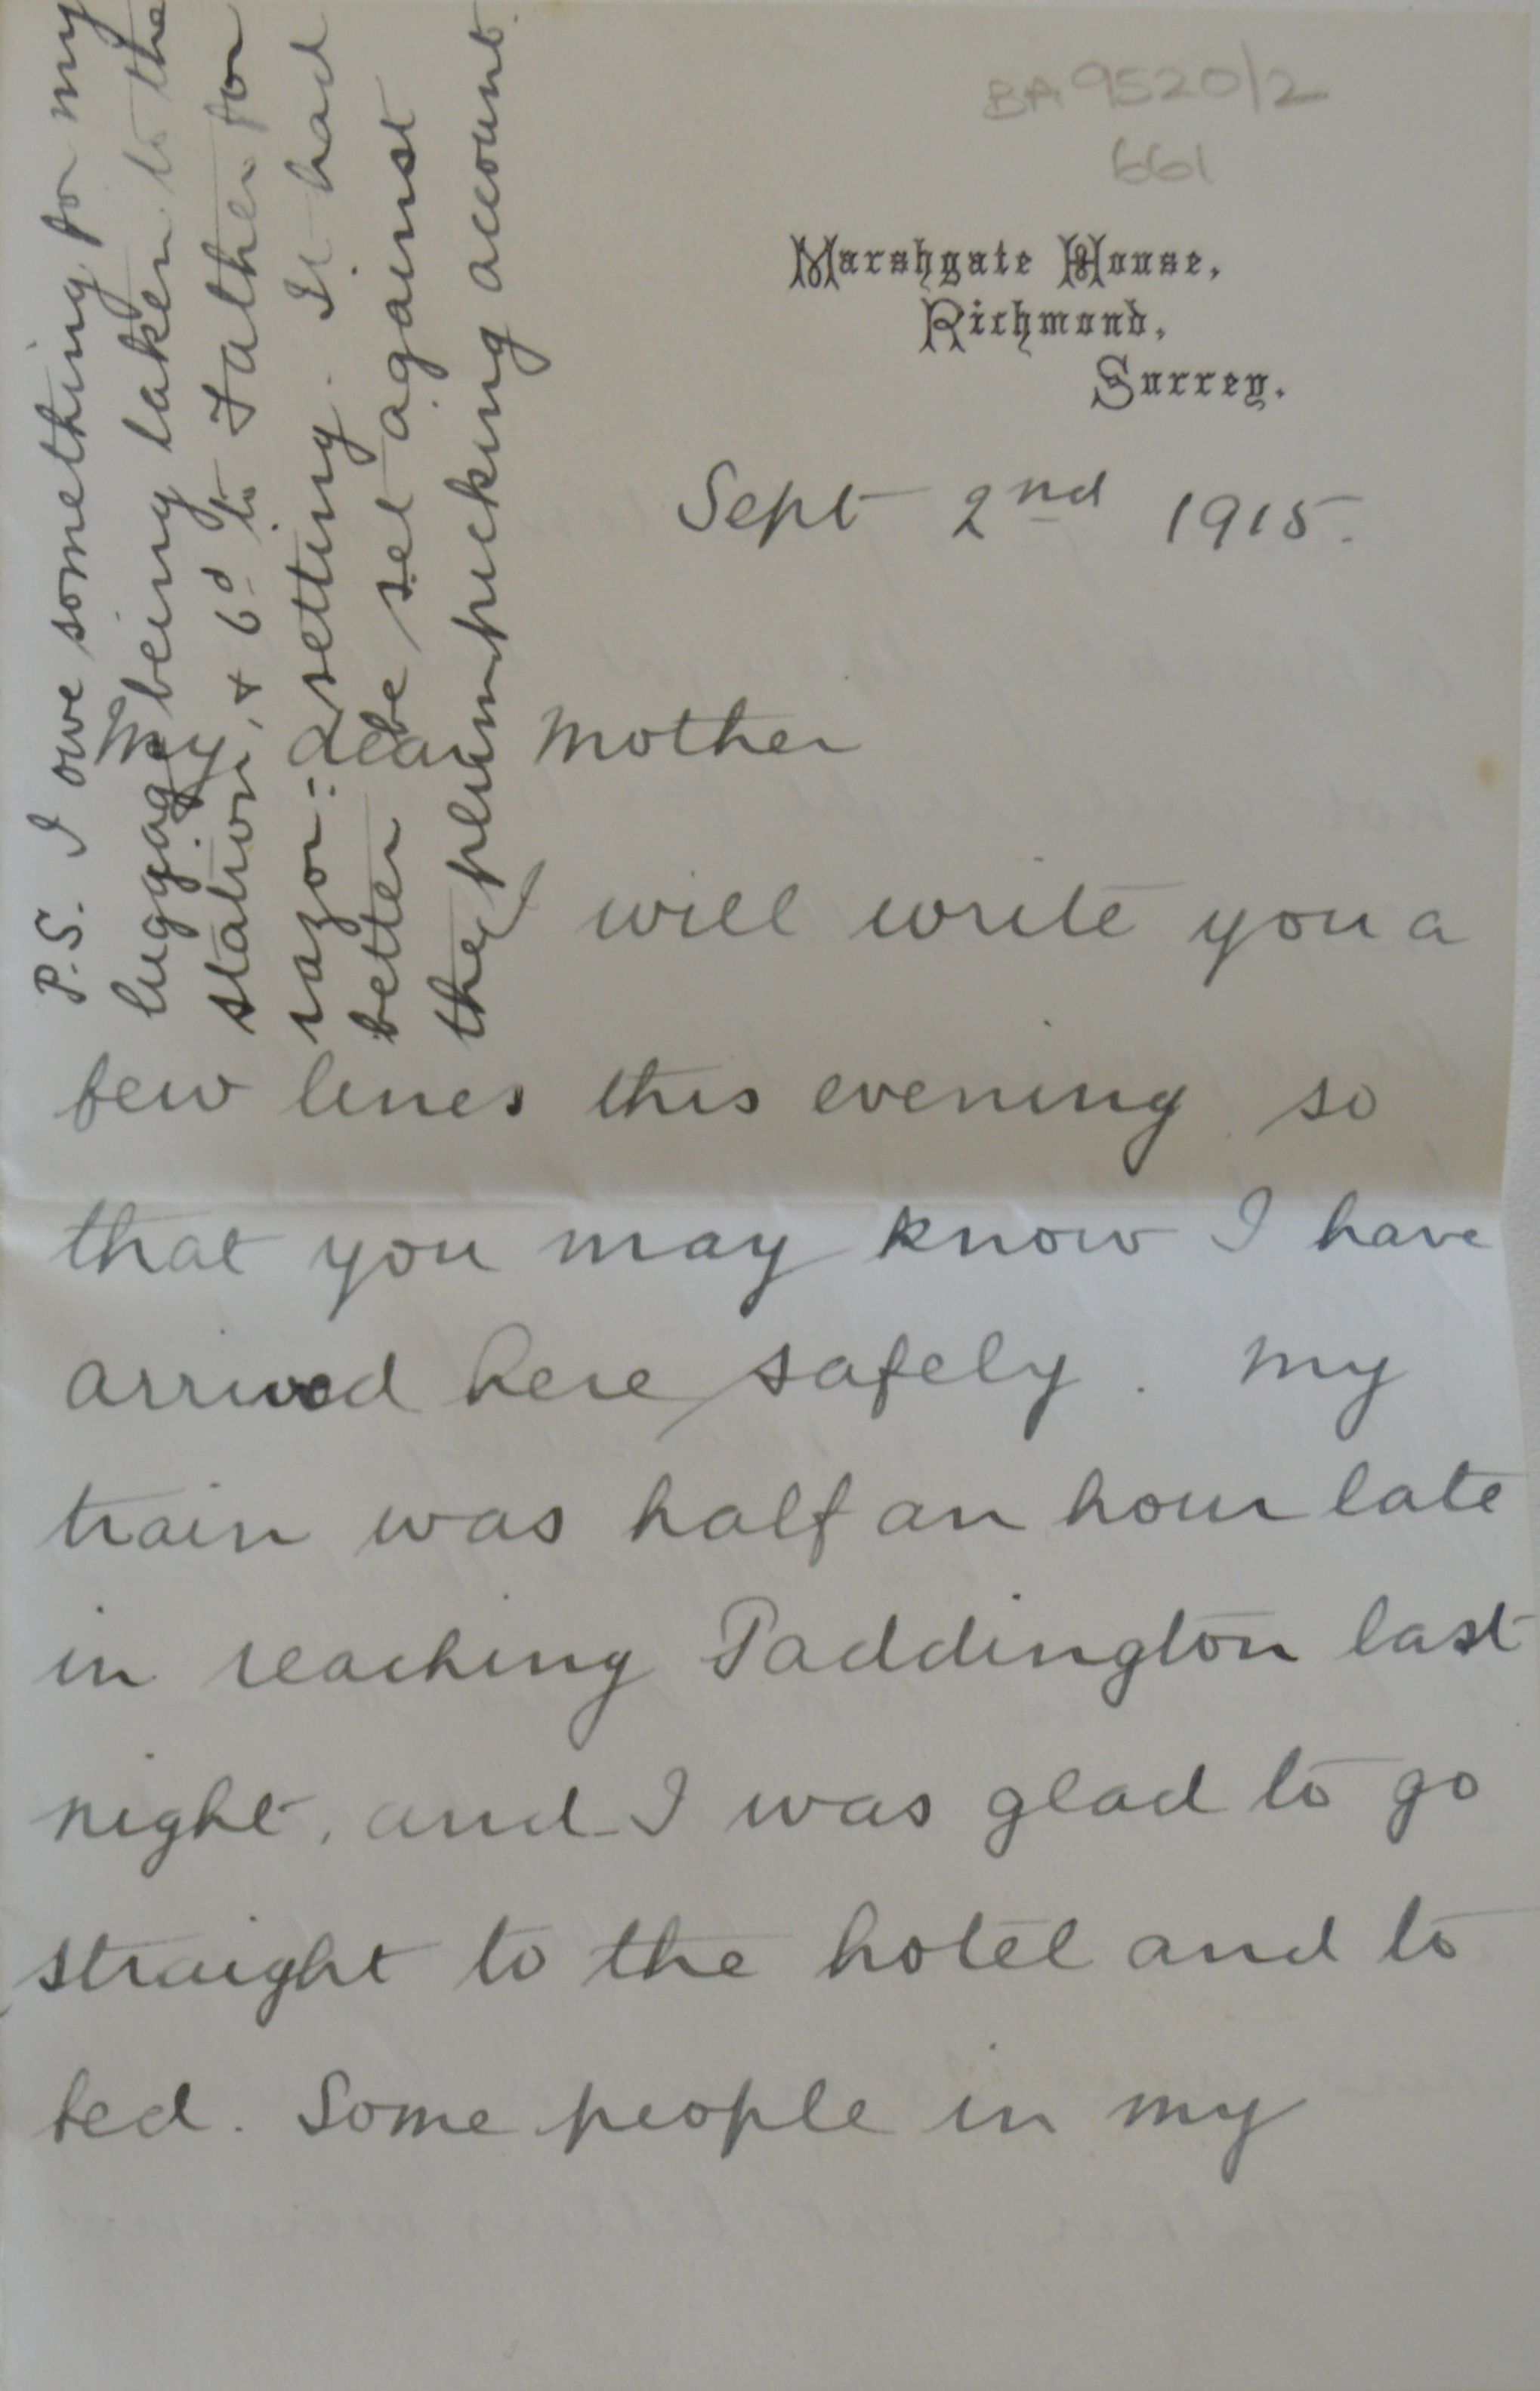 BA 9520/2
661
Marshgate House,
Richmond,
Surrey.
Sept 2nd 1915.
My dear Mother
I will write you a
few lines this evening so
that you may know I have
arrived here safely. My
train was half an hour late
in reaching Paddington last
night, and I was glad to go
straight to the hotel and to
bed. Some people in my
P.S. I owe something for my
luggage being taken to the
station, & 6d to Father for
razor=setting. It had
better be set against
the plum picking account.